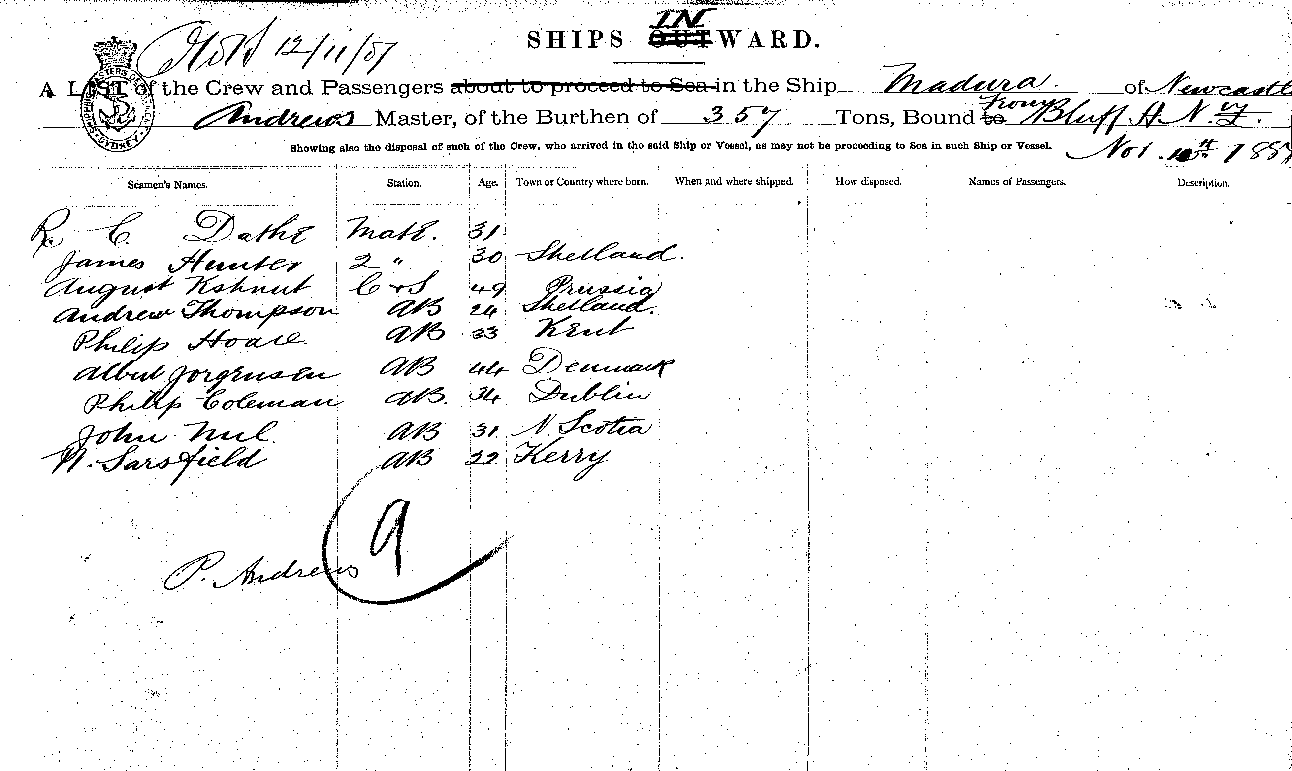 12/11/87
SHIPS OUTWARD. IN
A LIST of the Crew and Passengers about to proceed to Sea in the Ship Madura of Newcastle
Andrews Master, of the Burthen of 357 Tons, Bound to from Bluff H. N.Z.
Showing also the disposal of such of the Crew, who arrived in the said Ship or Vessel, as may not be proceeding to Sea in such Ship or Vessel.
Seamen's Names. Station. Age. Town or Country where born. When and where shipped. How disposed. Names of Passengers. Description.
R. C. Dathe Mate. 31
James Hunter 2 " 30 Shetland.
August C & S 49 Prussia
Andrew Thompson AB 24 Shetland.
Philip Hoare AB 33 Kent
Albert Jorgensen AB 44 Denmark
Philip Coleman AB. 34 Dublin
John AB 31 N Scotia
Sarsfield AB 22 Kerry
9
P. Andrews